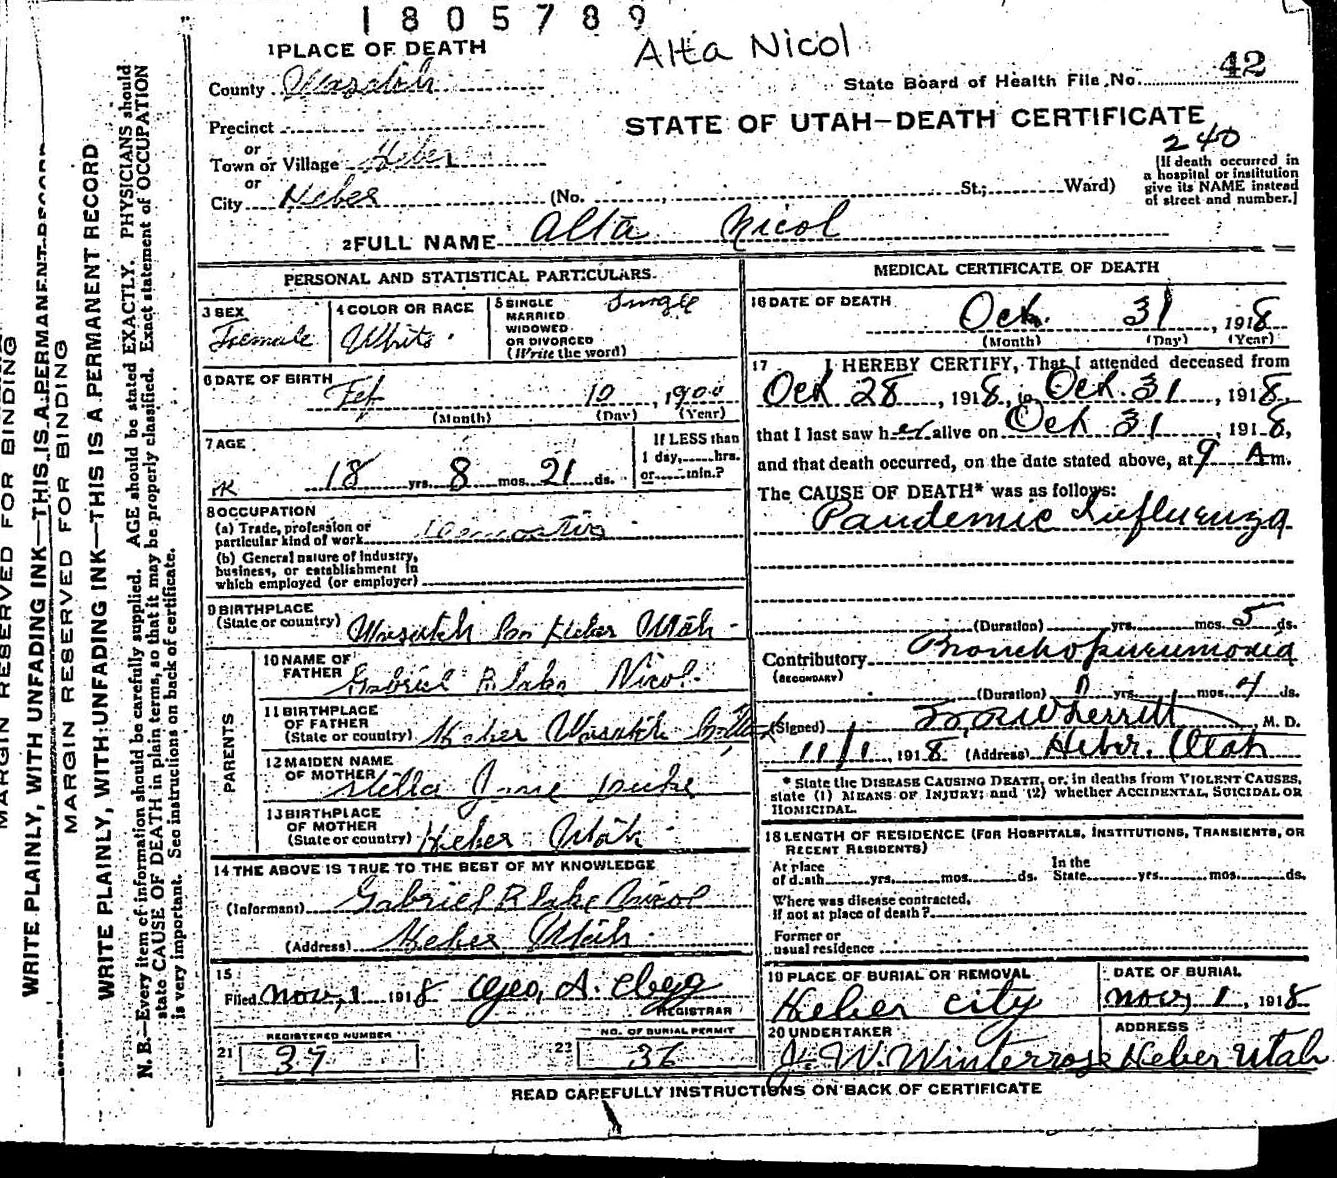 1805789
Alta Nicol
1 PLACE OF DEATH
County Wasatch
State Board of Health File No. 42
Precinct
STATE OF UTAH—DEATH CERTIFICATE
240
or
Town or Village Heber
or
City Heber (No. St.; Ward)
[If death occurred in
a hospital or institution
give its NAME instead
of street and number.]
2 FULL NAME Alta Nicol
PERSONAL AND STATISTICAL PARTICULARS.
3 SEX
Female
4 COLOR OR RACE
White
5 SINGLE
MARRIED
WIDOWED
OR DIVORCED
(Write the word)
Single
6 DATE OF BIRTH
Feb 10, 1900
(Month) (Day) (Year)
7 AGE
18 yrs. 8 mos. 21 ds.
If LESS than
1 day, hrs.
or min.?
8 OCCUPATION
(a) Trade, profession or
particular kind of work Domestic
(b) General nature of industry,
business, or establishment in
which employed (or employer)
9 BIRTHPLACE
(State or country) Wasatch Co Heber Utah
PARENTS
10 NAME OF
FATHER Gabriel Blake Nicol
11 BIRTHPLACE
OF FATHER
(State or country) Heber Wasatch
12 MAIDEN NAME
OF MOTHER Stella Jane
13 BIRTHPLACE
OF MOTHER
(State or country) Heber Utah
14 THE ABOVE IS TRUE TO THE BEST OF MY KNOWLEDGE
(Informant) Gabriel Blake Nicol
(Address) Heber Utah
15
Filed Nov, 1 1918 Geo, A. Clegg
REGISTRAR
REGISTERED NUMBER
21 37
NO. OF BURIAL PERMIT
22 36
MEDICAL CERTIFICATE OF DEATH
16 DATE OF DEATH
Oct. 31, 1918
(Month) (Day) (Year)
17 I HEREBY CERTIFY, That I attended deceased from
Oct 28, 1918, to Oct. 31, 1918,
that I last saw her alive on Oct 31, 1918,
and that death occurred, on the date stated above, at 9 A m.
The CAUSE OF DEATH* was as follows:
Pandemic Influenza
(Duration) yrs. mos. 5 ds.
Contributory Bronchopneumonia
(SECONDARY)
(Duration) 0 yrs. mos. 4 ds.
(Signed) Wherritt, M. D.
11/1, 1918 (Address) Heber, Utah
* State the DISEASE CAUSING DEATH, or, in deaths from VIOLENT CAUSES,
state (1) MEANS OF INJURY; and (2) whether ACCIDENTAL, SUICIDAL OR
HOMICIDAL.
18 LENGTH OF RESIDENCE (FOR HOSPITALS, INSTITUTIONS, TRANSIENTS, OR
RECENT RESIDENTS)
At place
of death yrs. mos. ds.
In the
State yrs. mos. ds.
Where was disease contracted,
if not at place of death?
Former or
usual residence
19 PLACE OF BURIAL OR REMOVAL
Heber City
DATE OF BURIAL
Nov, 1, 1918
20 UNDERTAKER
J. W. Winterrose
ADDRESS
Heber Utah
READ CAREFULLY INSTRUCTIONS ON BACK OF CERTIFICATE
MARGIN RESERVED FOR BINDING
WRITE PLAINLY, WITH UNFADING INK—THIS IS A PERMANENT RECORD
MARGIN RESERVED FOR BINDING
WRITE PLAINLY, WITH UNFADING INK—THIS IS A PERMANENT RECORD
N. B.—Every item of information should be carefully supplied. AGE should be stated EXACTLY. PHYSICIANS should
state CAUSE OF DEATH in plain terms, so that it may be properly classified. Exact statement of OCCUPATION
is very important. See instructions on back of certificate.